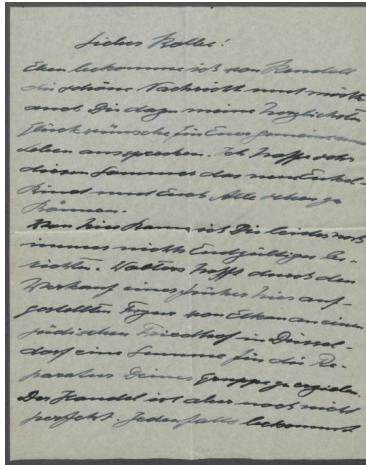 Lieber Kolbe!
Eben bekomme ich von Rendell
die schöne Nachricht und möchte
auch Dir dazu meine herzlichsten
Glückwünsche für Euer gemeinsames
Leben aussprechen. Ich hoffe sehr
diesen Sommer das neue Enkel-
kind und Euch Alle sehen zu
können.
Von hier kann ich Dir leider noch
immer nichts Endgültiges be-
richten. Walters hofft durch den
Verkauf einer früher hier auf-
gestellten Figur von Elkan an einen
jüdischen Friedhof in Düssel-
dorf eine Summe für die Re-
paratur Deiner Gruppe zu erzielen.
Der Handel ist aber noch nicht
perfekt. Jedenfalls bekommt